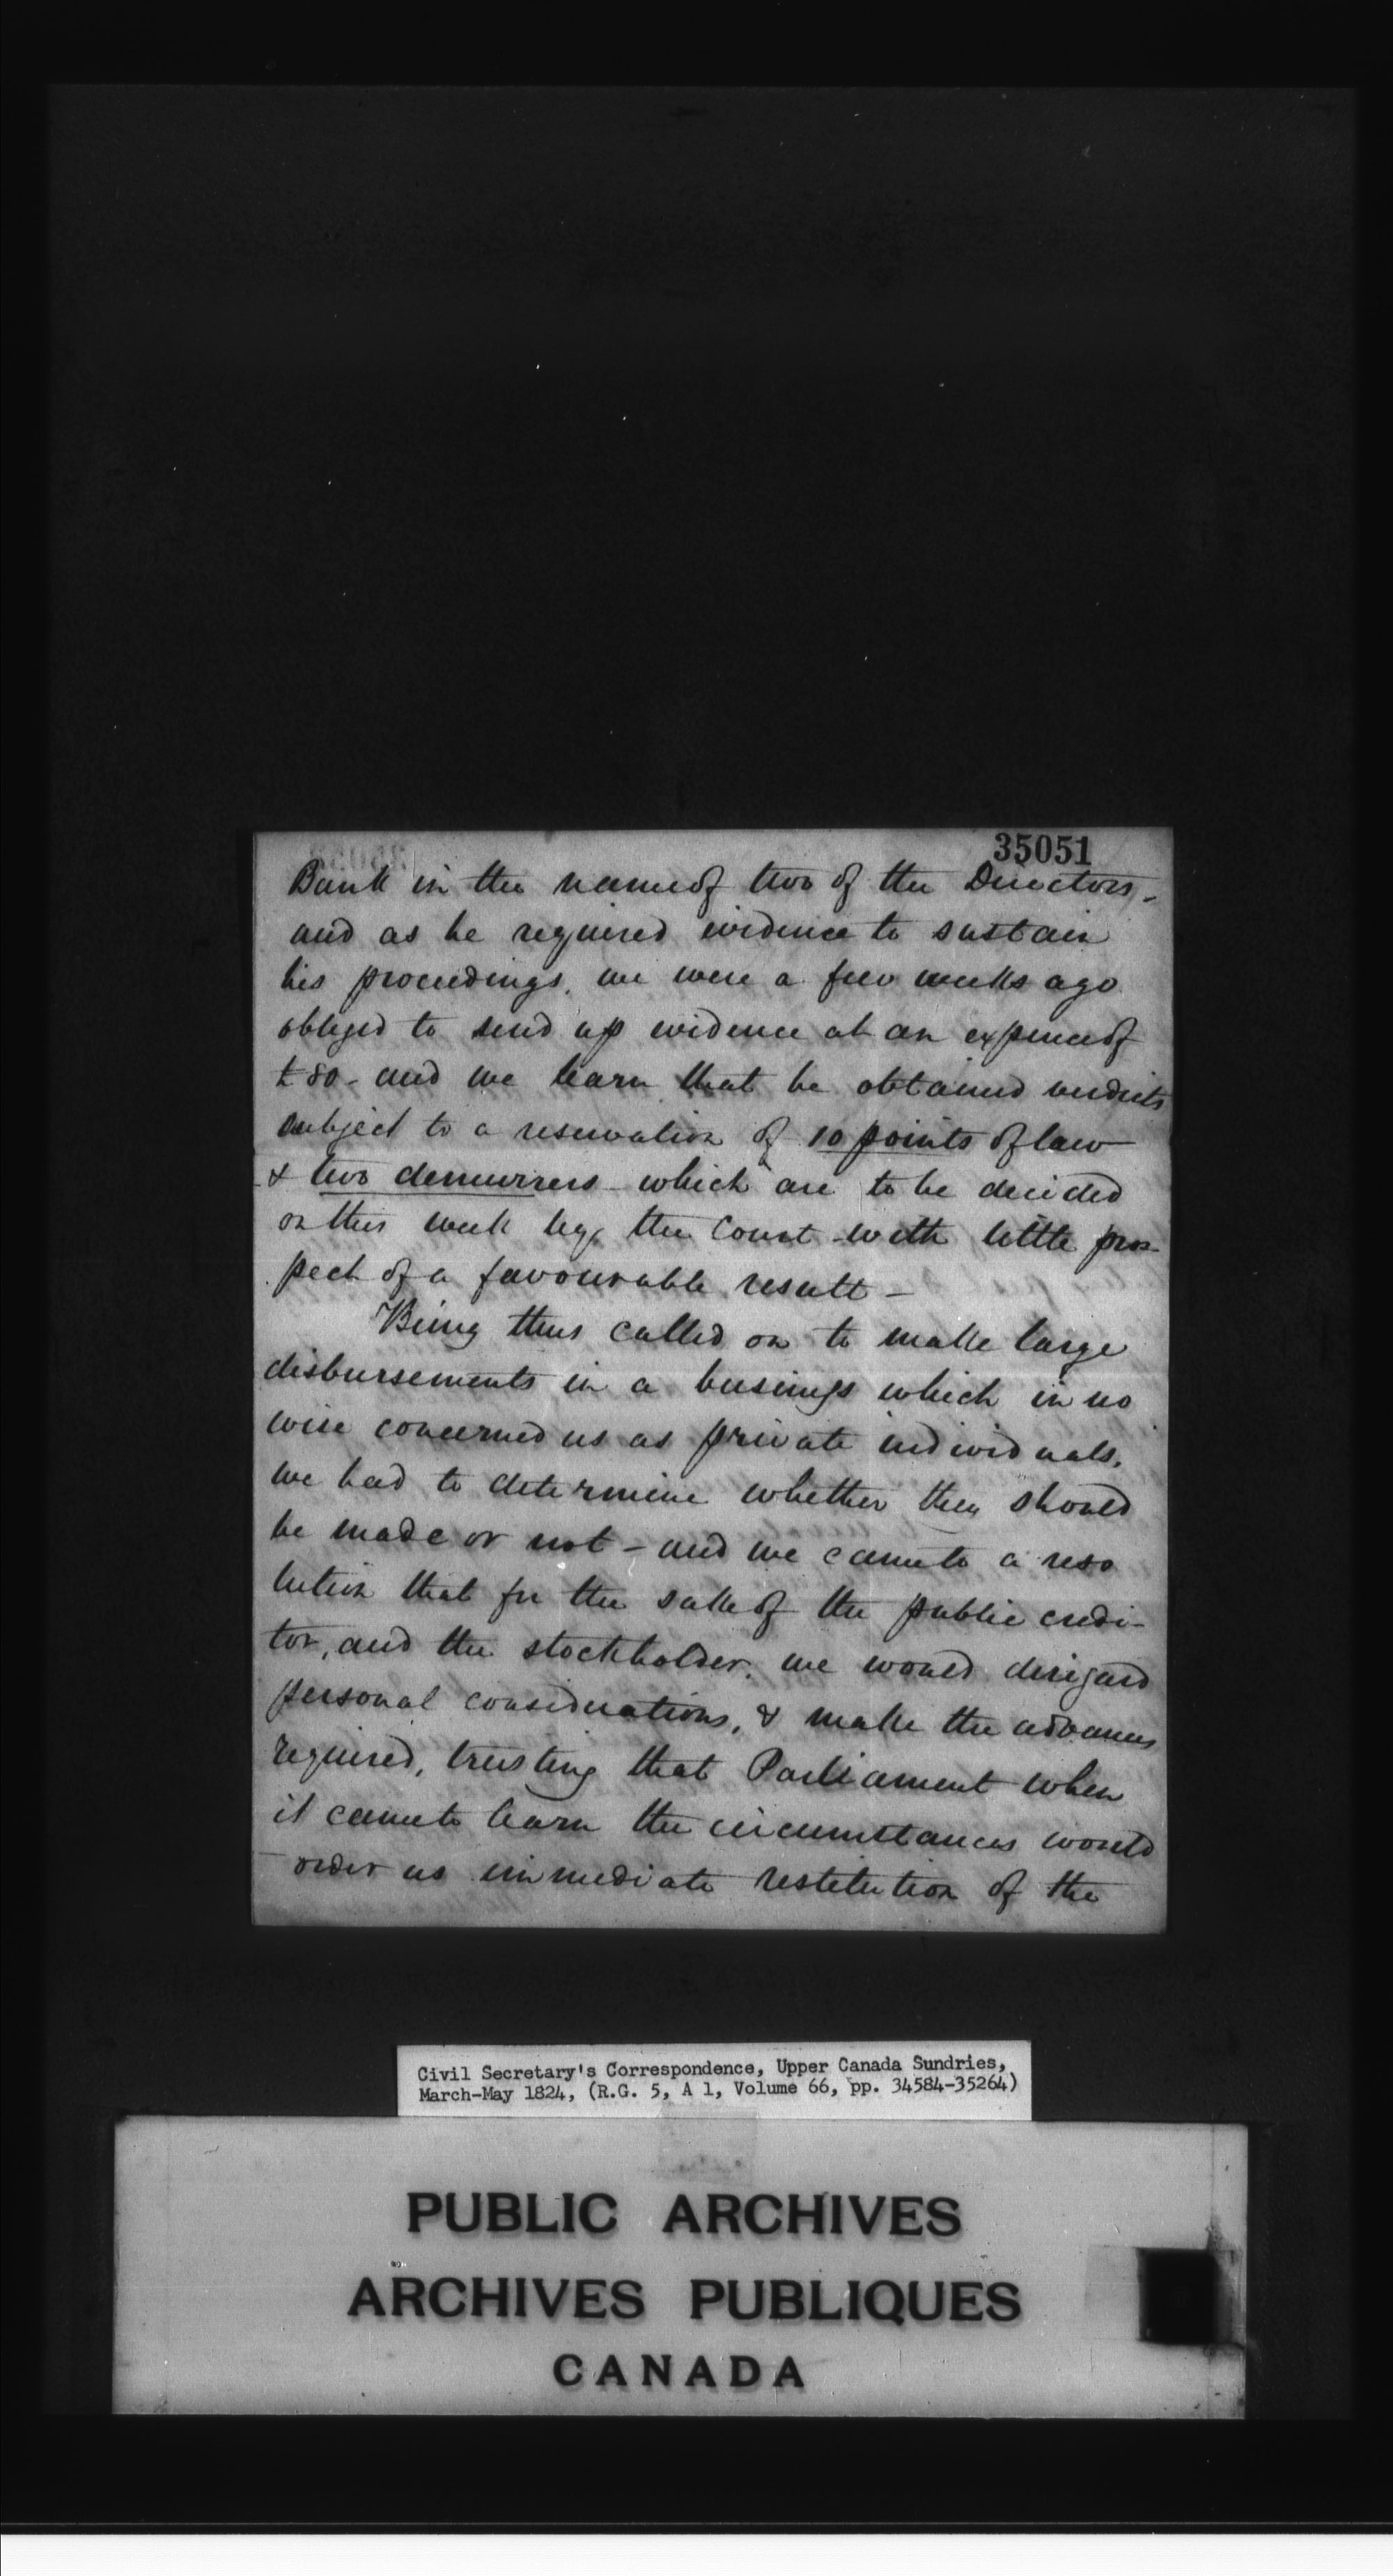 35051
Bank in the name of two of the Directors,
and as he required evidence to sustain
his proceedings, we were a few weeks ago
obliged to send up evidence at an expence of
£80 - and we learn that he obtained verdicts
subject to a reservation of 10 points of law
& two demurrers which are to be decided
on this week by the Court with little pros-
pect of a favourable result -
Being thus called on to make large
disbursements in a business which in no
wise concerned us as private individuals,
we had to determine whether they should
be made or not - and we came to a reso
lution that for the sake of the public credi-
tor, and the stockholder, we would disregard
personal considerations, & make the advances
required, trusting that Parliament when
it came to learn the circumstances would
order us immediate restitution of the
Civil Secretary's Correspondence, Upper Canada Sundries,
March-May 1824, (R.G. 5, A 1, Volume 66, pp. 34584-35264)
PUBLIC ARCHIVES
ARCHIVES PUBLIQUES
CANADA